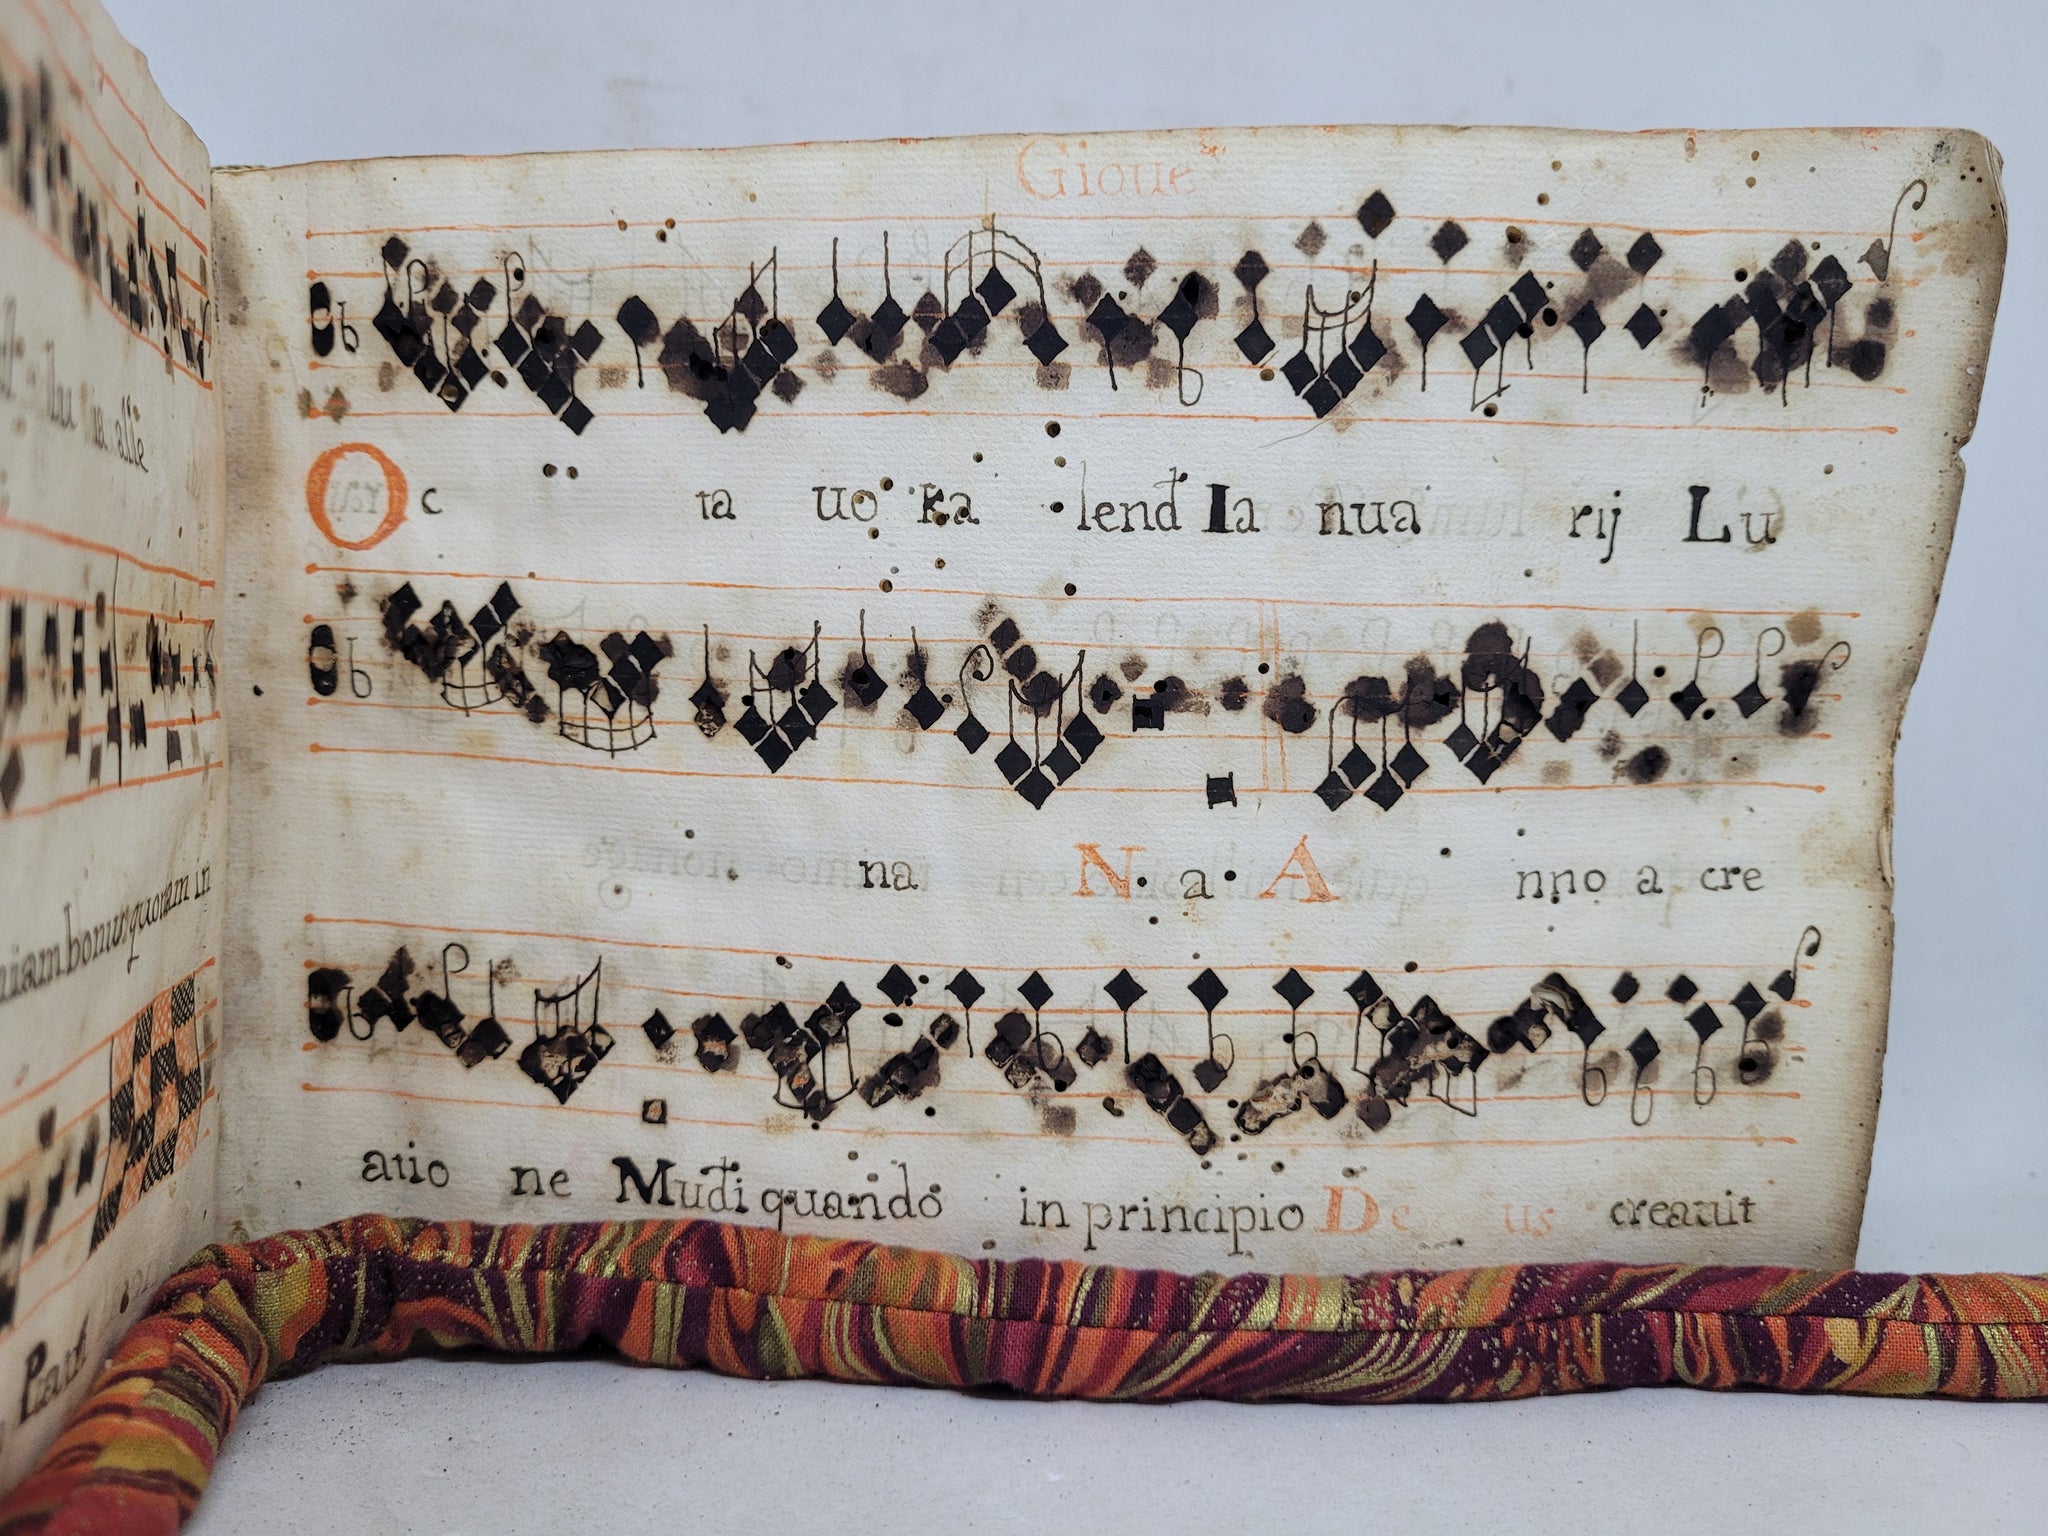 Gioue
Oc ta uo ka lend Ia nua rij Lu
na N. a. A nno a cre
atio ne Mudi quando in principio Deus creauit
lu ia alle
niam bonus quoniam in